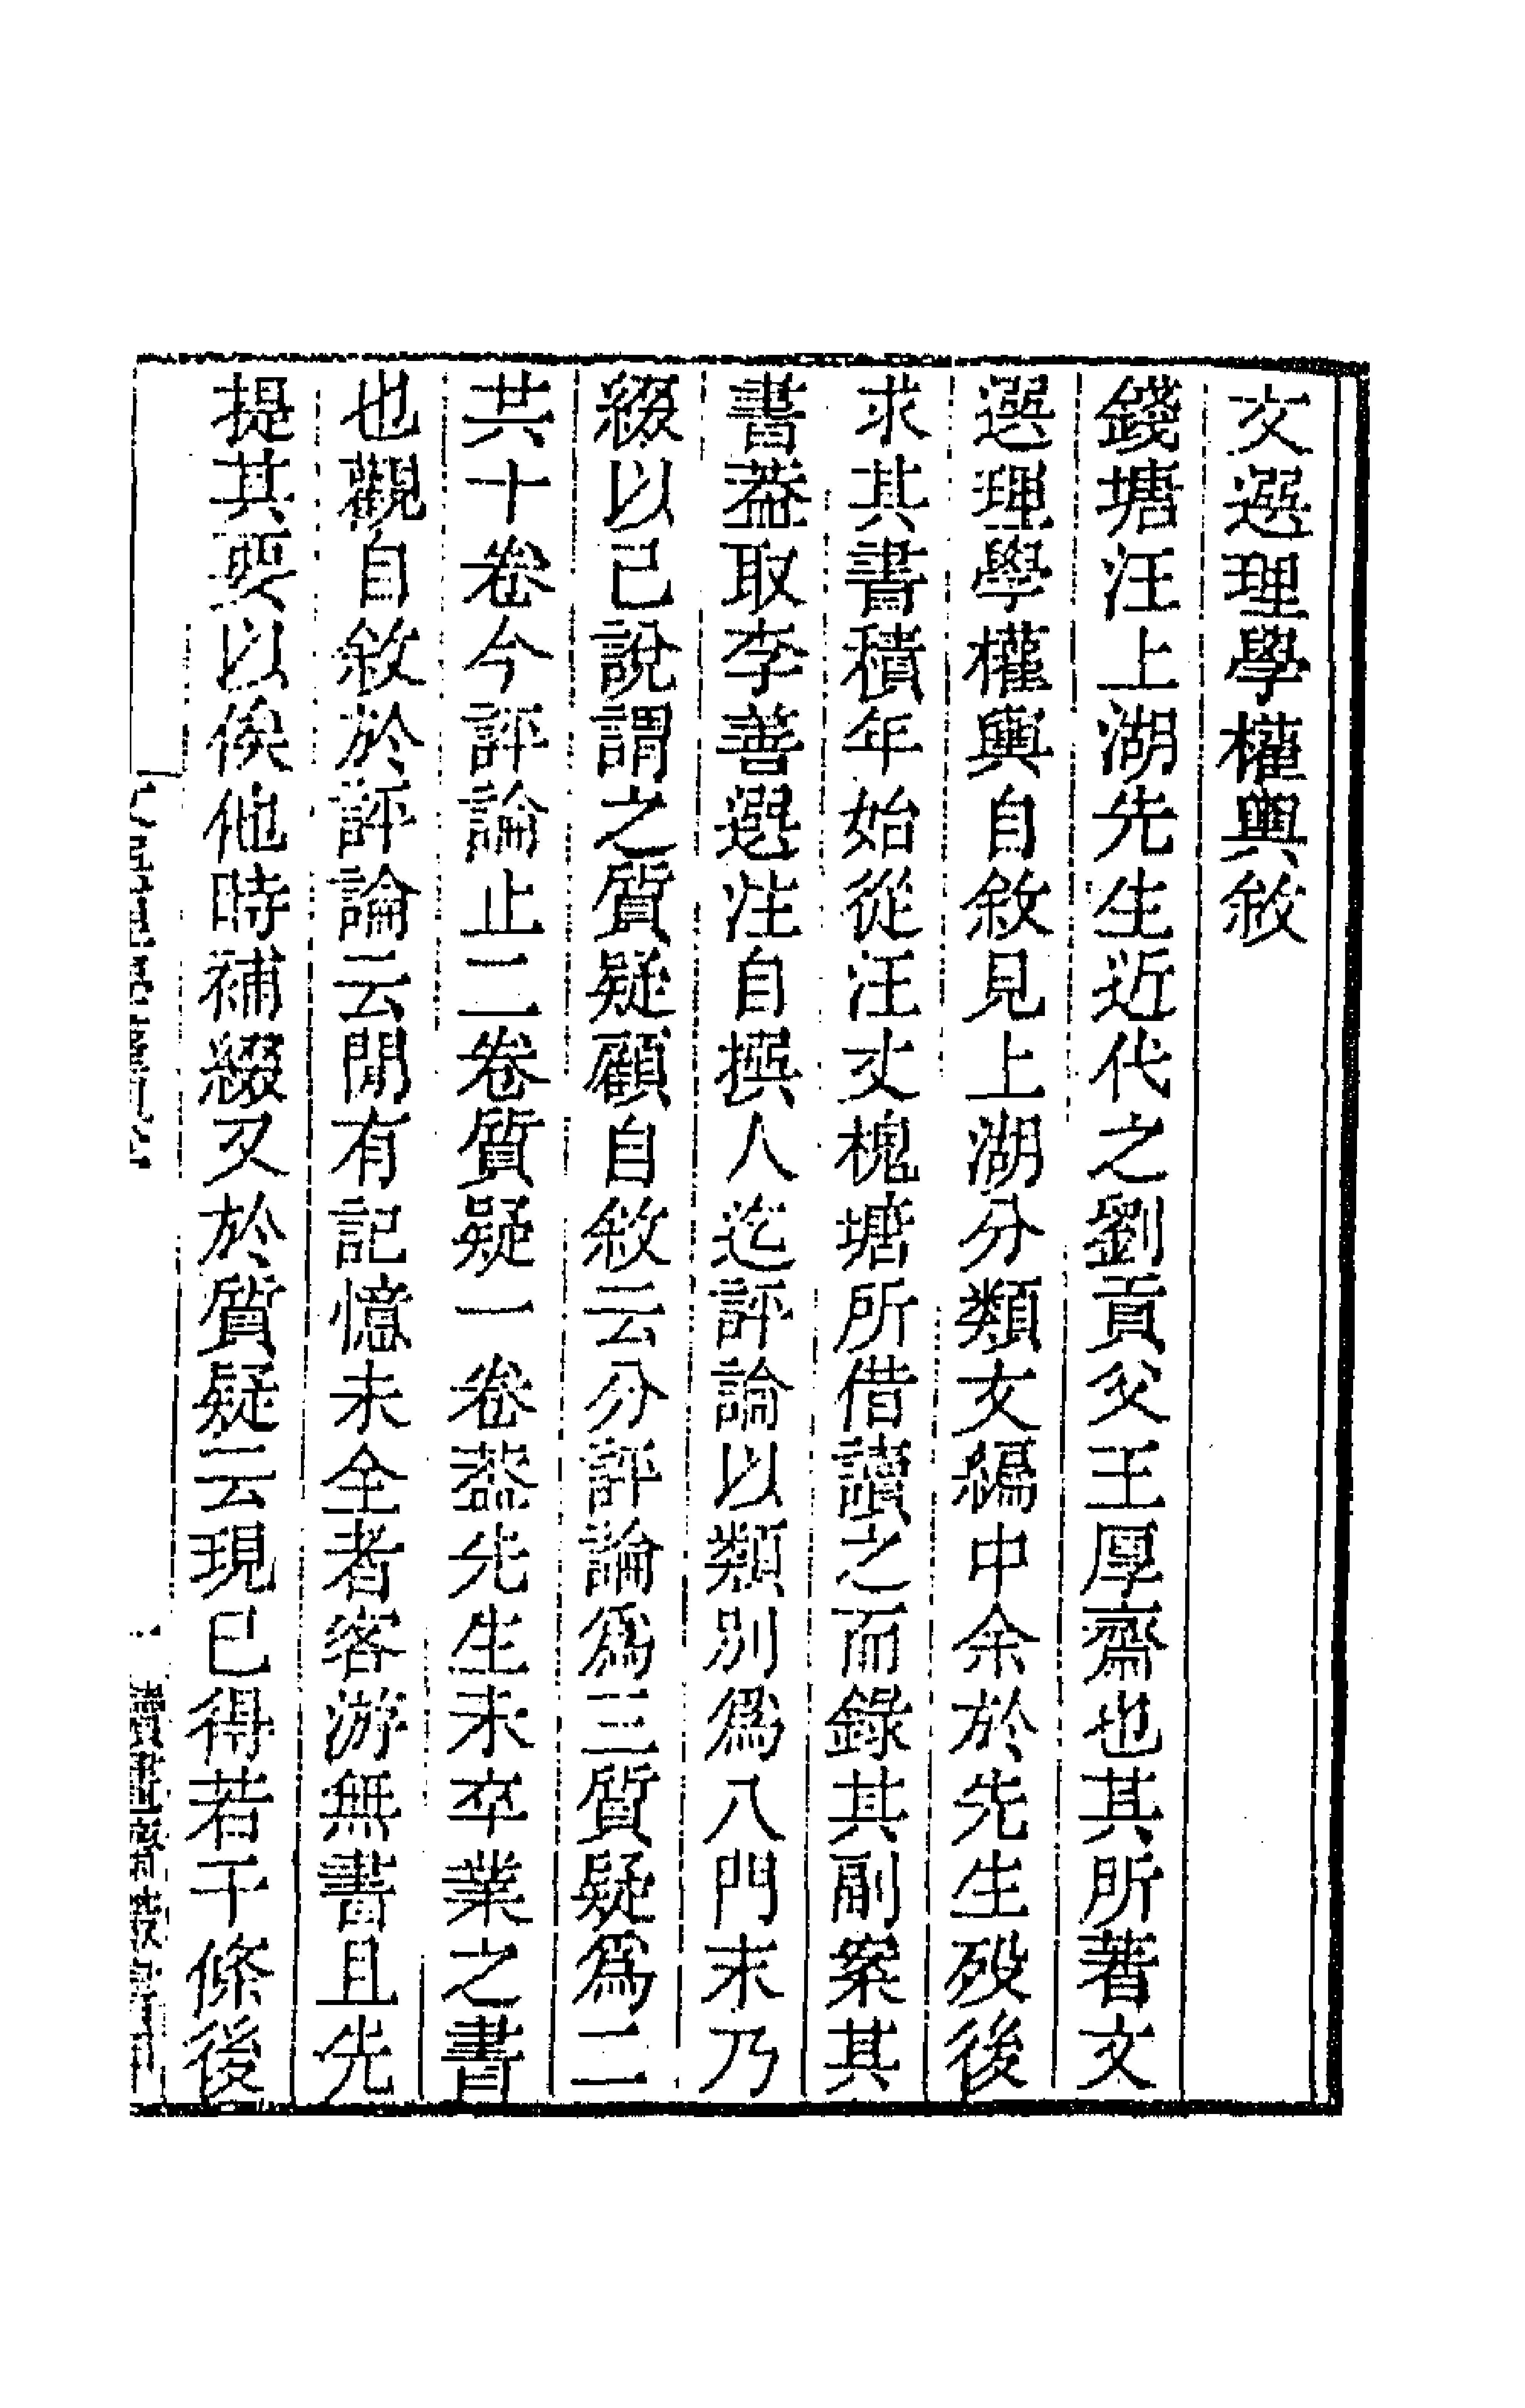 文選理學權輿敘
錢塘汪上湖先生近代之劉貢父王厚齋也其所著文
選理學權輿自敘見上湖分類文編中余於先生歿後
求其書積年始從汪丈槐塘所借讀之而錄其副案其
書葢取李善選注自撰人迄評論以類別爲八門末乃
綴以己說謂之質疑顧自敘云分評論爲三質疑爲二
共十卷今評論止二卷質疑一卷葢先生未卒業之書
也觀自敘於評論云閒有記憶未全者客游無書且先
提其要以俟他時補綴又於質疑云現已得若干條後